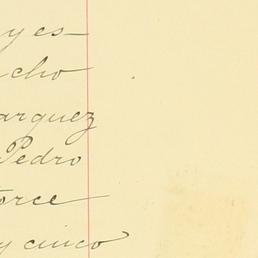 y es-
cho
arquez
Pedro
torce
y cinco